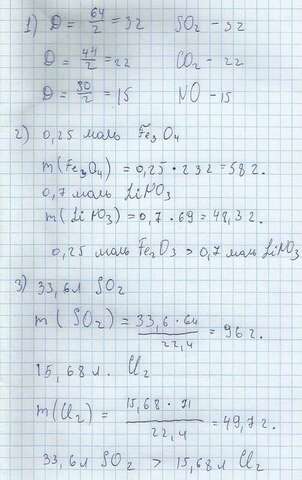 1) D = 64/2 = 32 SO₂ – 32
D = 44/2 = 22 CO₂ – 22
D = 30/2 = 15 NO – 15
2) 0,25 моль Fe₃O₄
m(Fe₃O₄) = 0,25 · 232 = 58 г.
0,7 моль LiNO₃
m(LiNO₃) = 0,7 · 69 = 48,3 г.
0,25 моль Fe₂O₃ > 0,7 моль LiNO₃
3) 33,6 л SO₂
m(SO₂) = 33,6 · 64 / 22,4 = 96 г.
15,68 л. Cl₂
m(Cl₂) = 15,68 · 71 / 22,4 = 49,7 г.
33,6 л SO₂ > 15,68 л Cl₂